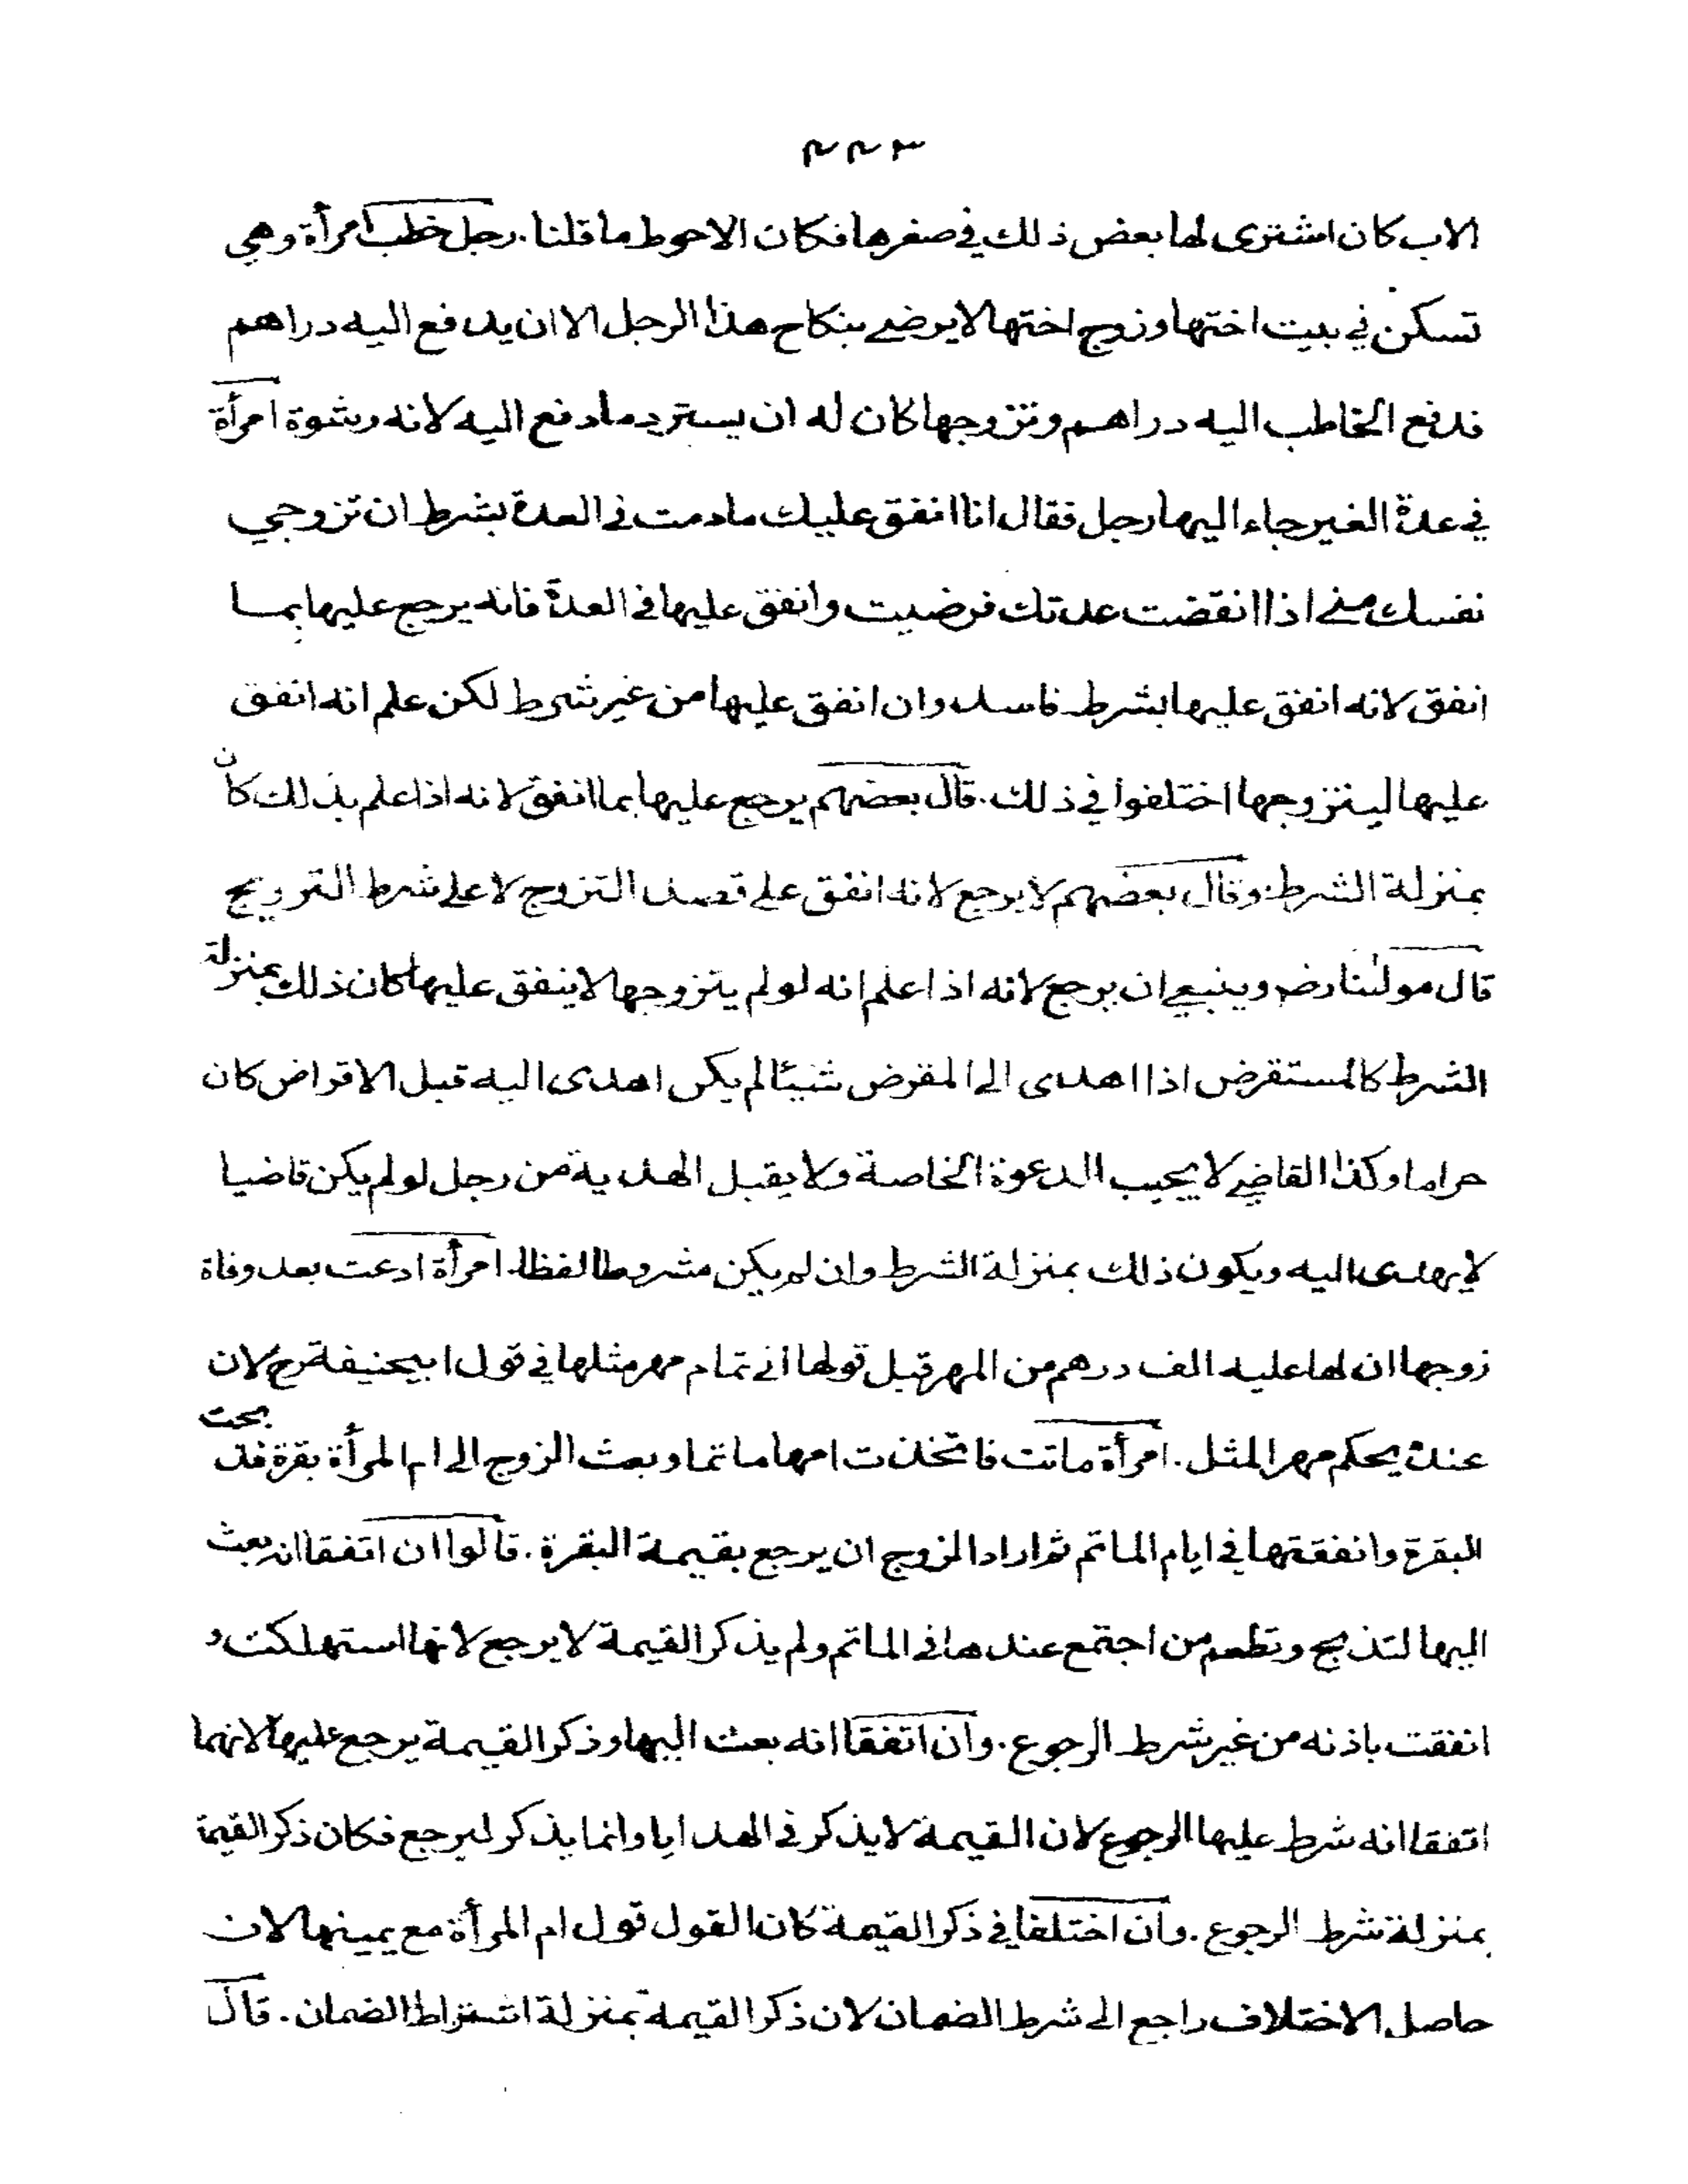 ٤٤٣
الاب كان اشترى لها بعض ذلك في صغرها فكان الاحوط ما قلنا. رجل خطب امرأة وهي
تسكن في بيت اختها وزوج اختها لا يرضى بنكاح هذا الرجل الا ان يدفع اليه دراهم
فدفع الخاطب اليه دراهم وتزوجها كان له ان يسترد ما دفع اليه لانه رشوة امرأة
في عدة الغير جاء اليها رجل فقال انا انفق عليك ما دمت في العدة بشرط ان تزوجي
نفسك مني اذا انقضت عدتك فرضيت وانفق عليها في العدة فانه يرجع عليها بما
انفق لانه انفق عليها بشرط فاسد وان انفق عليها من غير شرط لكن علم انه انفق
عليها ليتزوجها اختلفوا في ذلك. قال بعضهم يرجع عليها بما انفق لانه اذا علم بذلك كان
بمنزلة الشرط وقال بعضهم لا يرجع لانه انفق على قصد التزوج لا على شرط التزويج
قال مولٰنا رضـ وينبغي ان يرجع لانه اذا علم انه لو لم يتزوجها لا ينفق عليها كان ذلك بمنزلة
الشرط كالمستقرض اذا اهدى الى المقرض شيئا لم يكن اهدى اليه قبل الاقراض كان
حراما وكذا القاضي لا يجيب الدعوة الخاصة ولا يقبل الهدية من رجل لو لم يكن قاضيا
لا يهدى اليه ويكون ذلك بمنزلة الشرط وان لم يكن مشروطا لفظا. امرأة ادعت بعد وفاة
زوجها ان لها عليه الف درهم من المهر قبل قولها الى تمام مهر مثلها في قول ابيحنيفة رح لان
عنده يحكم مهر المثل. امرأة ماتت فاتخذت امها ماتما وبعث الزوج الى ام المرأة بقرة فذبحت
البقرة وانفقتها في ايام الماتم ثم اراد الزوج ان يرجع بقيمة البقرة. قالوا ان اتفقا انه بعث
اليها لتذبح وتطعم من اجتمع عندها في الماتم ولم يذكر القيمة لا يرجع لانها استهلكت و
انفقت باذنه من غير شرط الرجوع. وان اتفقا انه بعث اليها وذكر القيمة يرجع عليها لانهما
اتفقا انه شرط عليها الرجوع لان القيمة لا يذكر في الهدايا وانما يذكر ليرجع فكان ذكر القيمة
بمنزلة شرط الرجوع. وان اختلفا في ذكر القيمة كان القول قول ام المرأة مع يمينها لان
حاصل الاختلاف راجع الى شرط الضمان لان ذكر القيمة بمنزلة اشتراط الضمان. قال